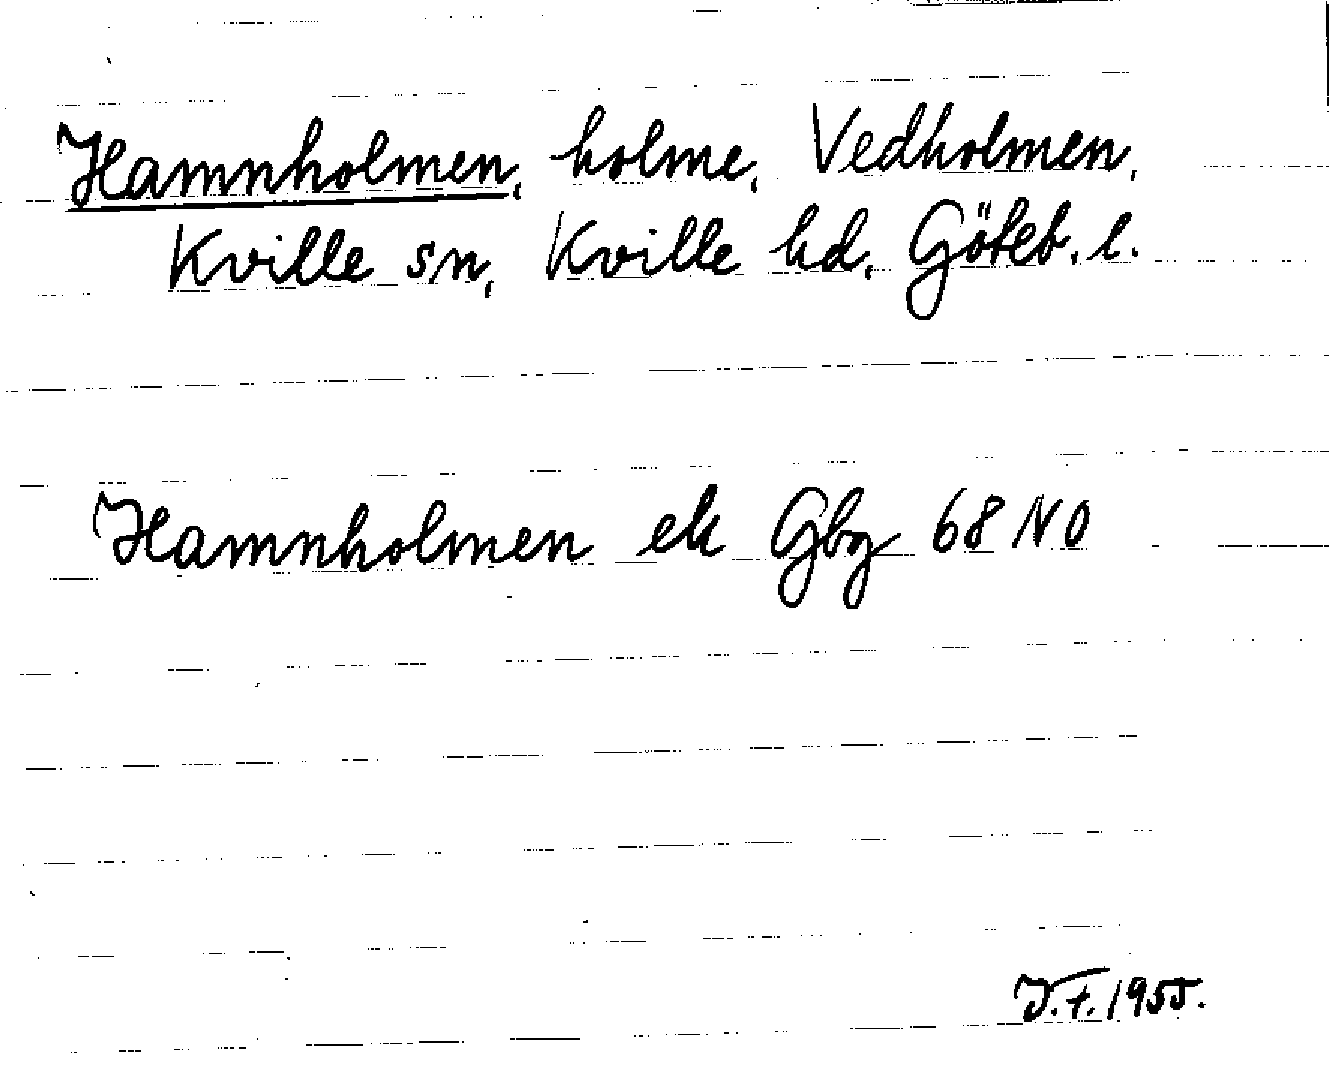 Hamnholmen, holme, Vedholmen,
Kville sn, Kville hd, Göteb. l.
Hamnholmen ek Gbg 68 NO
J.F. 1955.